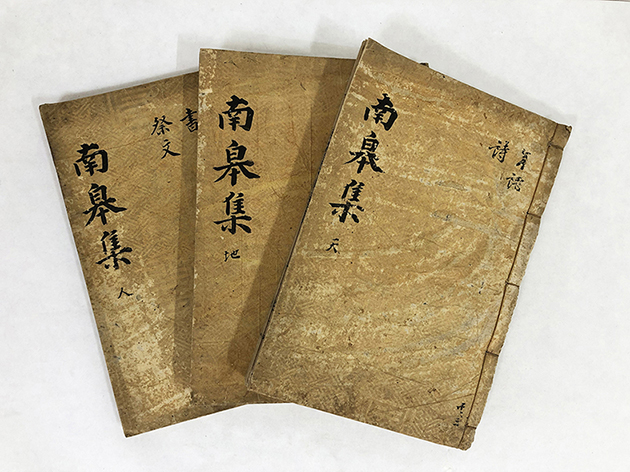 年譜
詩
南皐集
天
共三
南皐集
地
書
祭文
南皐集
人